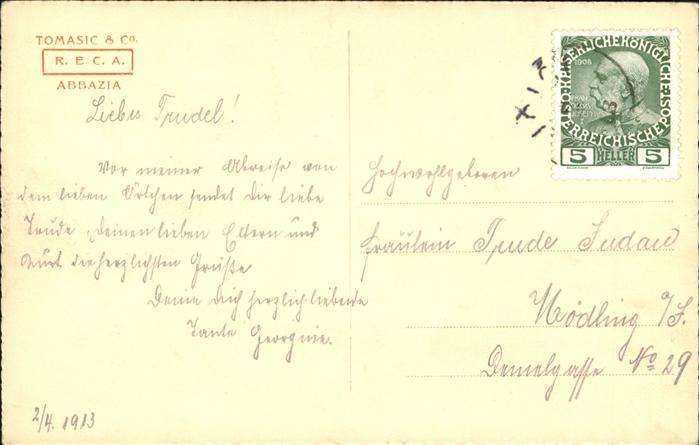 TOMASIC & Co.
R. E. C. A.
ABBAZIA
Liebes Trudel!
Vor meiner Abreise von
dem lieben Örtchen sendet Dir liebe
Trude, Deinen lieben Eltern und
Kurt die herzlichsten Grüße
Deine Dich herzlich liebende
Tante Georgine.
2/4. 1913
KAISERLICHE KÖNIGLICHE
ÖSTERREICHISCHE POST
1908
5 HELLER 5
Hochwohlgeboren
Fräulein Trude Sudau
Mödling a/S.
Demelgasse No 29